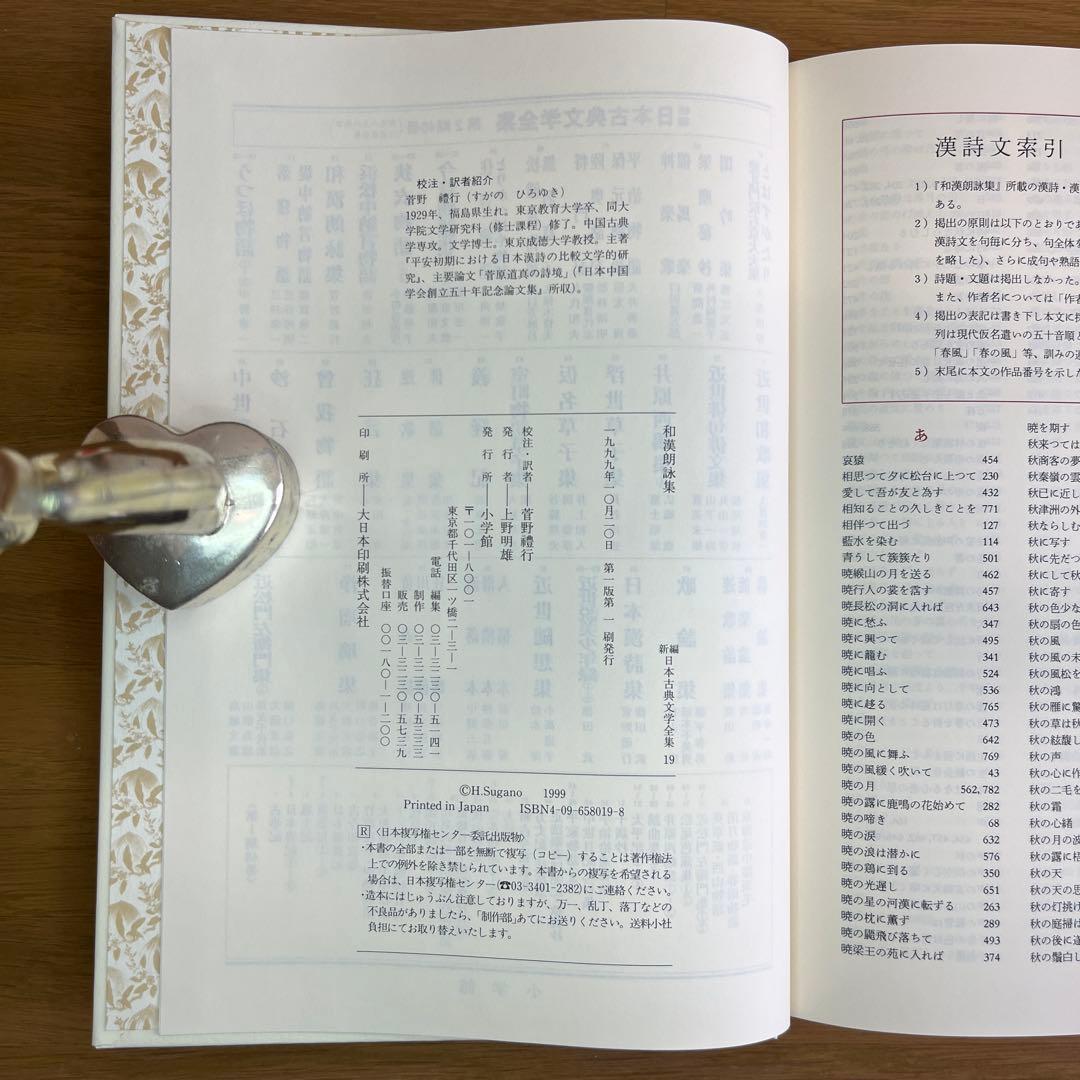 校注・訳者紹介
菅野 禮行(すがの ひろゆき)
1929年、福島県生れ。東京教育大学卒、同大
学院文学研究科(修士課程)修了。中国古典
学専攻。文学博士。東京成徳大学教授。主著
『平安初期における日本漢詩の比較文学的研
究』、主要論文「菅原道真の詩境」(『日本中国
学会創立五十年記念論文集』所収)。
新編日本古典文学全集 19
和漢朗詠集
一九九九年一〇月二〇日 第一版第一刷発行
校注・訳者──菅野禮行
発行者──上野明雄
発行所──小学館
〒一〇一-八〇〇一
東京都千代田区一ツ橋二-三-一
電話 編集 〇三-三二三〇-五一四一
制作 〇三-三二三〇-五三三三
販売 〇三-三二三〇-五七三九
振替口座 〇〇一八〇-一-二〇〇
印刷所──大日本印刷株式会社
©H.Sugano 1999
Printed in Japan ISBN4-09-658019-8
R〈日本複写権センター委託出版物〉
・本書の全部または一部を無断で複写(コピー)することは著作権法
上での例外を除き禁じられています。本書からの複写を希望される
場合は、日本複写権センター(☎03-3401-2382)にご連絡ください。
・造本にはじゅうぶん注意しておりますが、万一、乱丁、落丁などの
不良品がありましたら、「制作部」あてにお送りください。送料小社
負担にてお取り替えいたします。
漢詩文索引
1)『和漢朗詠集』所載の漢詩・漢
ある。
2)掲出の原則は以下のとおりであ
漢詩文を句毎に分ち、句全体を
を略した)、さらに成句や熟語
3)詩題・文題は掲出しなかった。
また、作者名については「作者
4)掲出の表記は書き下し本文に拠
列は現代仮名遣いの五十音順と
「春風」「春の風」等、訓みの違
5)末尾に本文の作品番号を示した
あ
哀猿 454
相思つて夕に松台に上つて 230
愛して吾が友と為す 432
相知ることの久しきことを 771
相伴つて出づ 127
藍水を染む 114
青うして簇簇たり 501
暁緱山の月を送る 462
暁行人の裳を霑す 457
暁長松の洞に入れば 643
暁に愁ふ 347
暁に興つて 495
暁に籠む 341
暁に唱ふ 524
暁に向として 536
暁に越る 765
暁に開く 473
暁の色 642
暁の風に舞ふ 769
暁の風緩く吹いて 43
暁の月 562, 782
暁の露に鹿鳴の花始めて 282
暁の啼き 68
暁の涙 632
暁の浪は潜かに 576
暁の鶏に到る 350
暁の光遅し 651
暁の星の河漢に転ずる 263
暁の枕に薫ず 289
暁の鼯飛び落ちて 493
暁梁王の苑に入れば 374
暁を期す
秋来つては
秋商客の夢
秋秦嶺の雲
秋巳に近し
秋津洲の外
秋ならしむ
秋に写す
秋に先だつ
秋にして秋
秋に寄す
秋の色少な
秋の扇の色
秋の風
秋の風の末
秋の風松を
秋の鴻
秋の雁に驚
秋の草は秋
秋の絃馥し
秋の声
秋の心に作
秋の二毛を
秋の霜
秋の心緒
秋の月の波
秋の露に梧
秋の天
秋の天の思
秋の灯挑げ
秋の庭掃は
秋の後に逢
秋の鬢白し